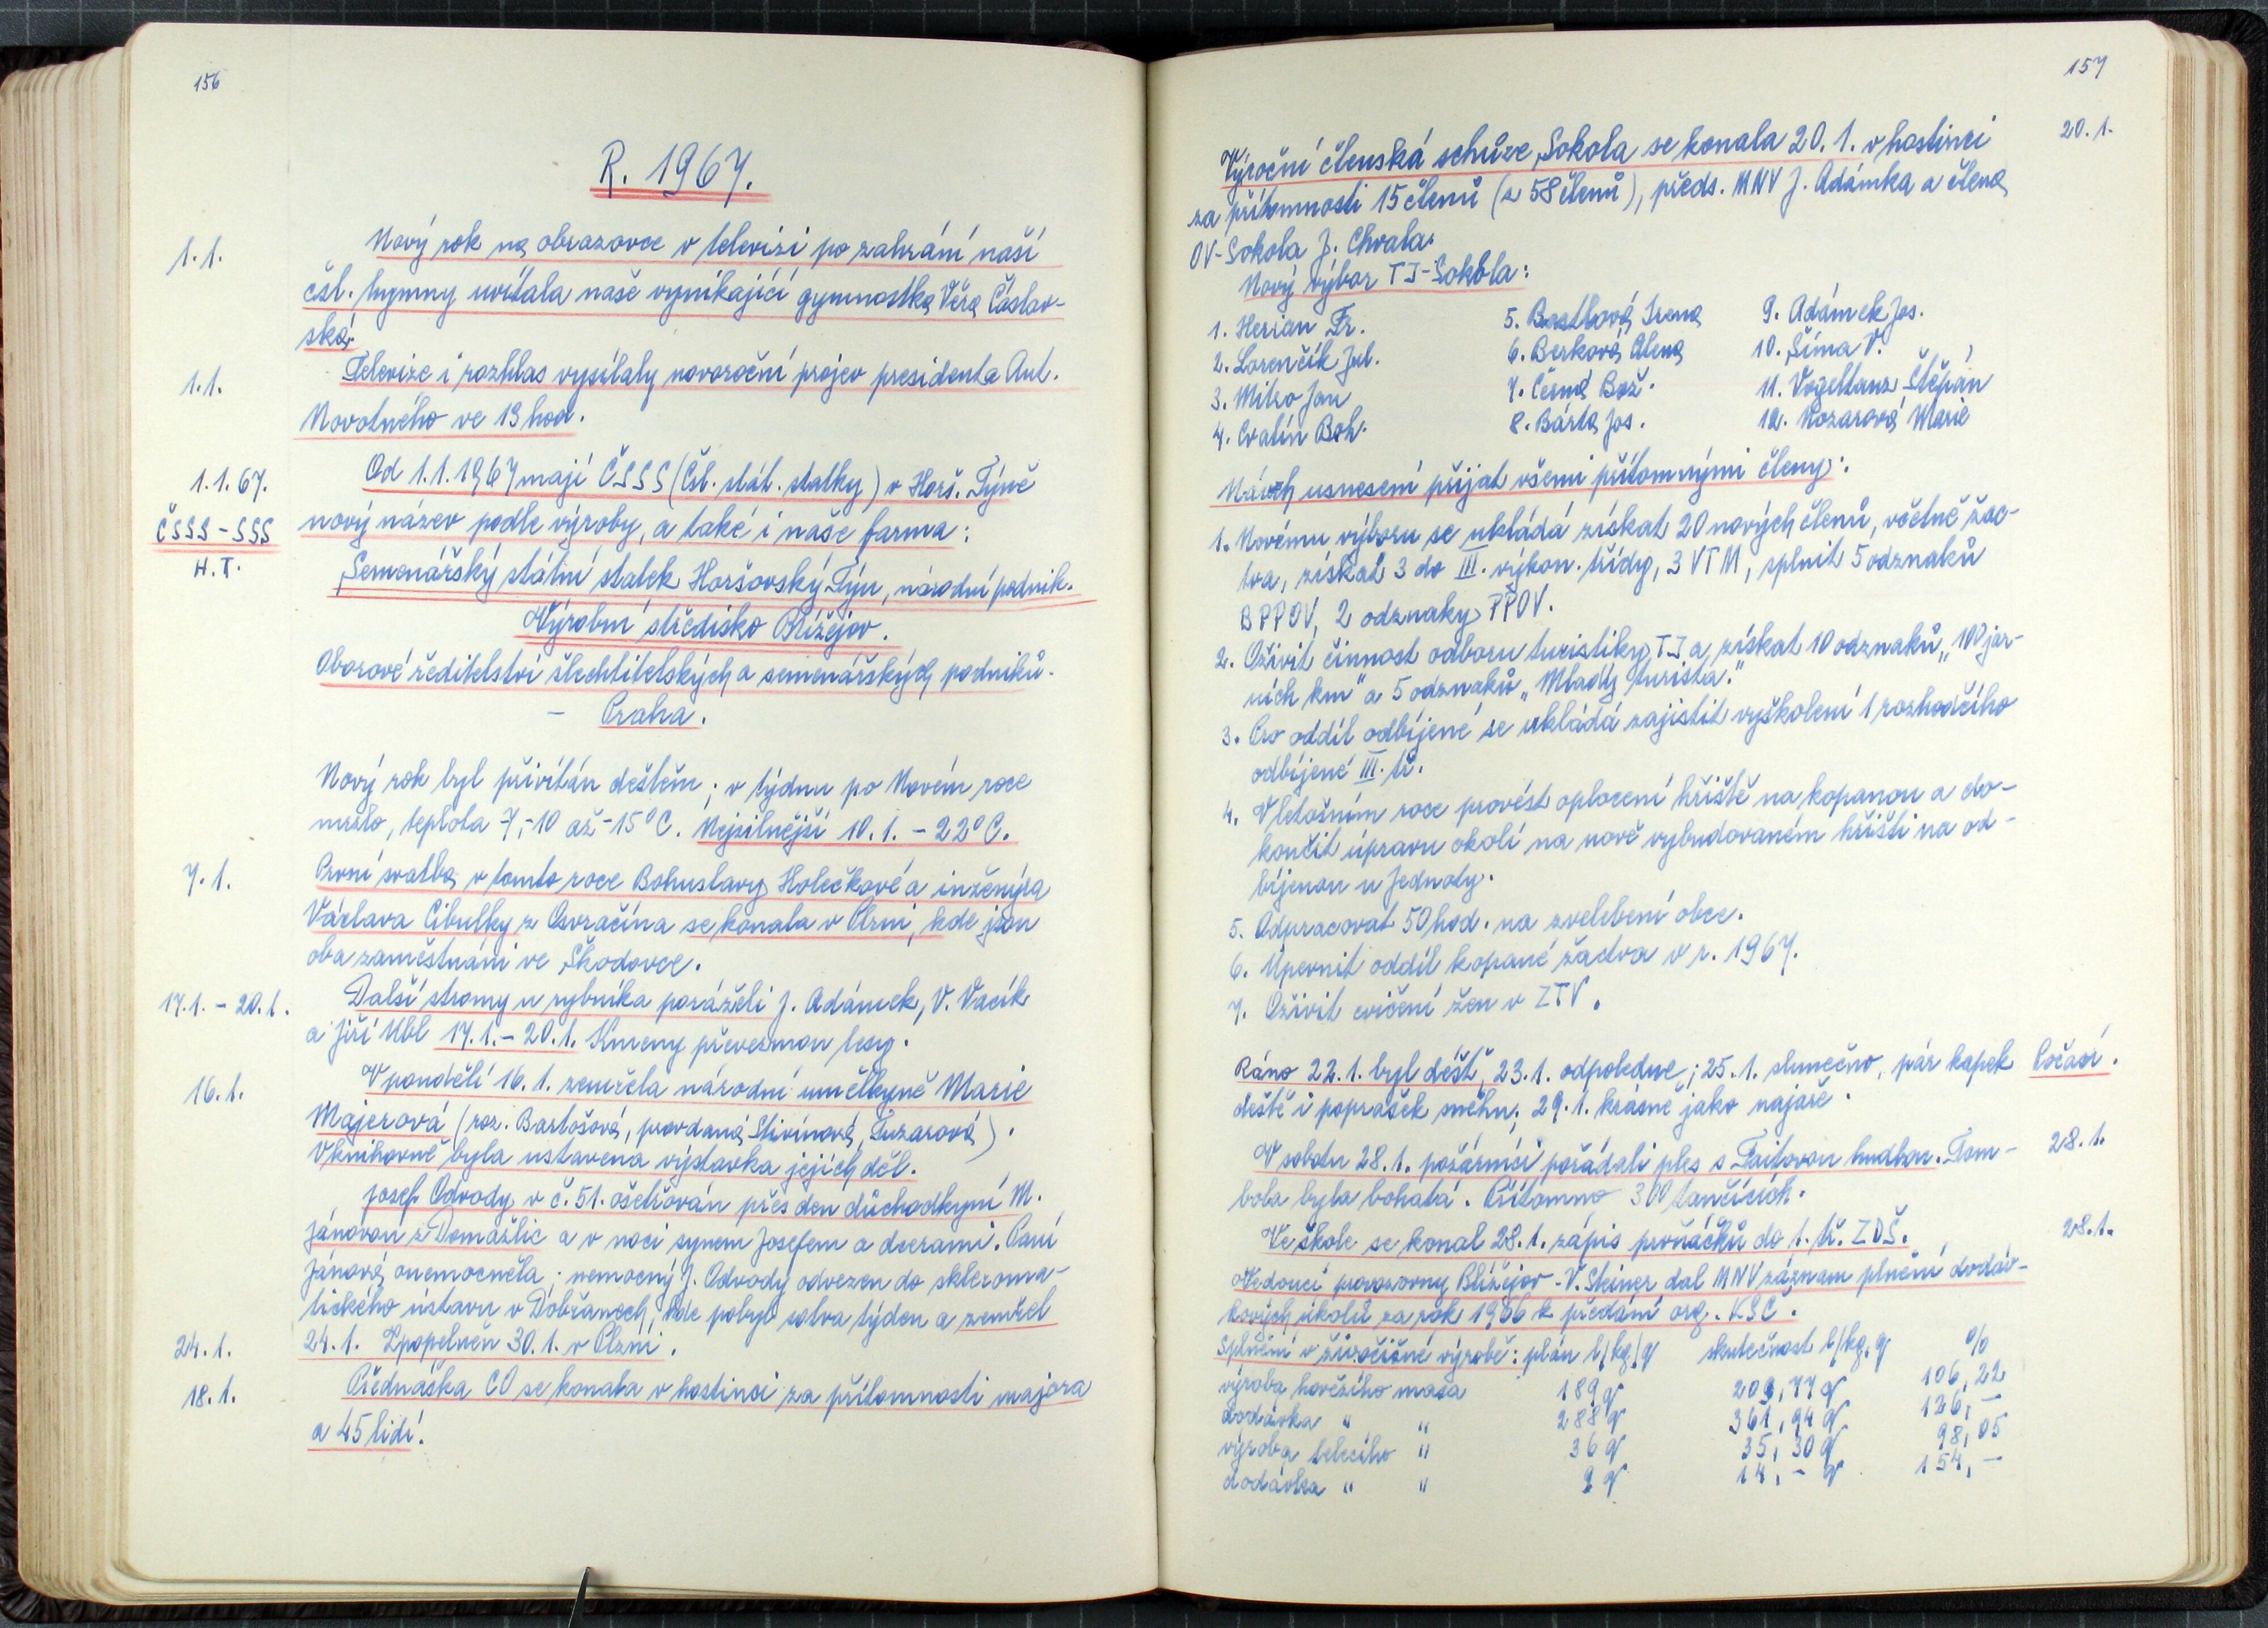 156
R. 1967.
1.1.
Nový rok na obrazovce v televizi po zahrání naší
čsl. hymny uvítala naše vynikající gymnastka Věra Čáslav-
ská.
1.1.
Televize i rozhlas vysílaly novoroční projev presidenta Ant.
Novotného ve 13 hod.
1.1.67.
Od 1.1.1967 mají ČSSS (Čsl. stát. statky) v Horš. Týně
ČSSS - SSS
nový název podle výroby, a také i naše farma:
H.T.
Semenářský státní statek Horšovský Týn, národní podnik.
Výrobní středisko Blížejov.
Oborové ředitelství šlechtitelských a semenářských podniků.
- Praha.
Nový rok byl přivítán deštěm; v týdnu po Novém roce
mrzlo, teplota -7,-10 až -15°C. Nejsilnější 10.1. - 22°C.
7.1.
První svatba v tomto roce Bohuslavy Holečkové a inženýra
Václava Cibulky z Osvračína se konala v Plzni, kde jsou
oba zaměstnáni ve Škodovce.
17.1. - 20.1.
Další stromy u rybníka poráželi J. Adámek, V. Vacík
a Jiří Ubl 17.1. - 20.1. Kmeny převezmou lesy.
16.1.
V pondělí 16.1. zemřela národní umělkyně Marie
Majerová (roz. Bartošová, provdaná Stivínová, Tusarová).
V knihovně byla ustavena výstavka jejích děl.
Josef Odvody v č. 51. ošetřován přes den důchodkyní M.
Jánovou z Domažlic a v noci synem Josefem a dcerami. Paní
Jánová onemocněla; nemocný J. Odvody odvezen do skleroma-
tického ústavu v Dobřanech, kde pobyl sotva týden a zemřel
24.1.
24.1. Zpopelněn 30.1. v Plzni.
18.1.
Přednáška CO se konala v hostinci za přítomnosti majora
a 45 lidí.
157
20.1.
Výroční členská schůze Sokola se konala 20.1. v hostinci
za přítomnosti 15 členů (z 58 členů), předs. MNV J. Adámka a člena
OV-Sokola J. Chvala.
Nový výbor TJ-Sokola:
1. Herian Fr. 5. Bastlová Irena 9. Adámek Jos.
2. Lorenčík Jul. 6. Berková Alena 10. Šíma V.
3. Mitro Jan 7. Černá Bož. 11. Vogeltanz Štěpán
4. Cvalín Boh. 8. Bárta Jos. 12. Kozarová Marie
Návrh usnesení přijat všemi přítomnými členy:
1. Novému výboru se ukládá získat 20 nových členů, včetně žac-
tva, získat 3 do III. výkon. třídy, 3 VTM, splnit 5 odznaků
BPPOV, 2 odznaky PPOV.
2. Oživit činnost odboru turistiky TJ a získat 10 odznaků „100 jar-
ních km" a 5 odznaků „Mladý turista."
3. Pro oddíl odbíjené se ukládá zajistit vyškolení 1 rozhodčího
odbíjené III. tř.
4. V letošním roce provést oplocení hřiště na kopanou a do-
končit úpravu okolí na nově vybudovaném hřišti na od-
bíjenou u Jednoty.
5. Odpracovat 50 hod. na zvelebení obce.
6. Upevnit oddíl kopané žactva v r. 1967.
7. Oživit cvičení žen v ZTV.
Ráno 22.1. byl déšť, 23.1. odpoledne; 25.1. slunečno, pár kapek
Počasí.
deště i poprašek sněhu; 29.1. krásně jako najaře.
V sobotu 28.1. požárníci pořádali ples s Taitovou hudbou. Tom-
28.1.
bola byla bohatá. Přítomno 300 tančících.
Ve škole se konal 28.1. zápis prvňáčků do 1. tř. ZDŠ.
28.1.
Vedoucí provozovny Blížejov - V. Steiner dal MNV záznam plnění dodáv-
kových úkolů za rok 1966 k předání org. KSČ.
Splnění v živočišné výrobě: plán l/kg/q skutečnost l/kg,q %
výroba hovězího masa 189 q 200,77 q 106,22
dodávka " " 288 q 361,94 q 126,-
výroba telecího " 36 q 35,30 q 98,05
dodávka " " 9 q 14,- q 154,-